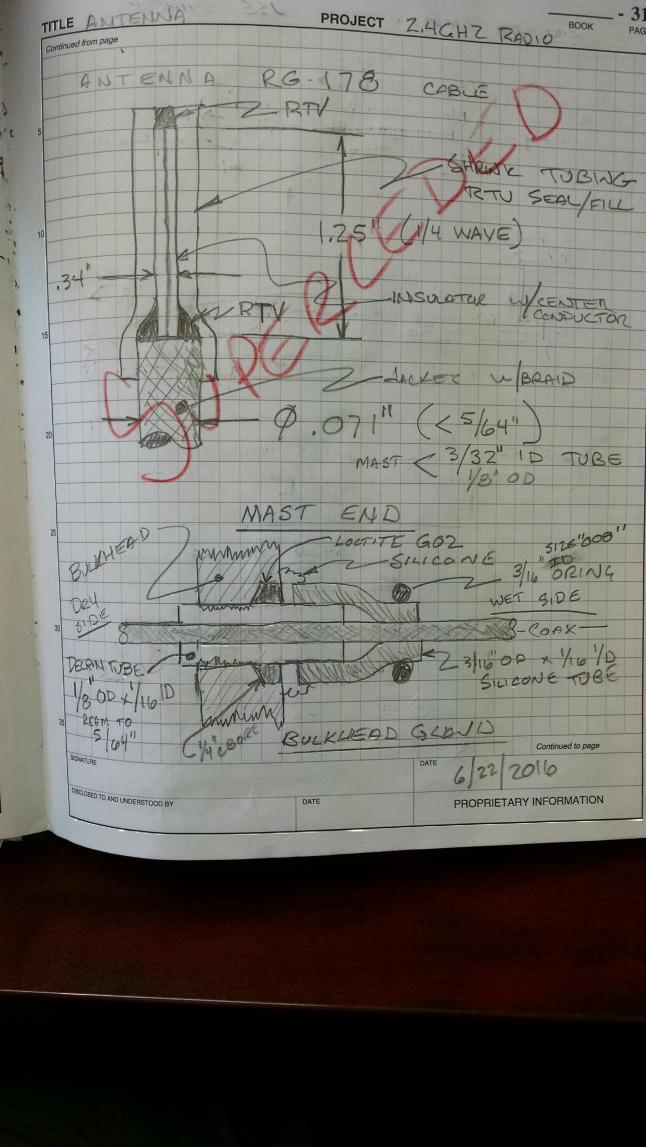 TITLE ANTENNA
PROJECT 2.4GHZ RADIO
BOOK
- 31
PAG
Continued from page
ANTENNA RG-178 CABLE
RTV
SUPERCEDED
SHRINK TUBING
RTV SEAL/FILL
1.25" (1/4 WAVE)
.34"
INSULATOR W/CENTER
CONDUCTOR
RTV
JACKET W/BRAID
Ø .071" (< 5/64")
MAST < 3/32" ID TUBE
1/8" OD
5
10
15
20
25
30
35
MAST END
BULKHEAD
LOCTITE GO2
SILICONE
SIZE "008"
3/16" ID ORING
DRY
SIDE
WET SIDE
COAX
DELRIN TUBE
1/8" OD X 1/16 ID
REAM TO
5/64"
3/16" OD X 1/16 I/D
SILICONE TUBE
1/4" CBORE
BULKHEAD GLAND
Continued to page
SIGNATURE
DATE
6/22/2016
DISCLOSED TO AND UNDERSTOOD BY
DATE
PROPRIETARY INFORMATION